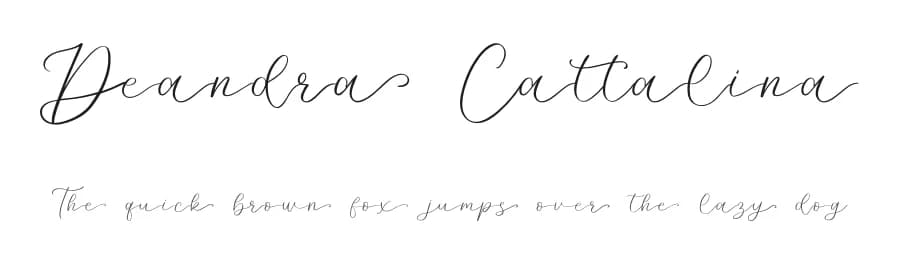 Deandra Cattalina
The quick brown fox jumps over the lazy dog